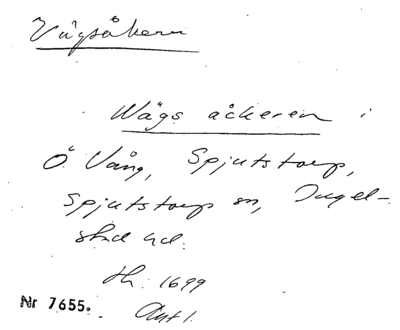 Vägsåkern
Wägs åckeren i
Ö Vång, Spjutstorp,
Spjutstorp sn, Ingel-
stad hd.
Lh. 1699
Avt 1.
Nr 7655.